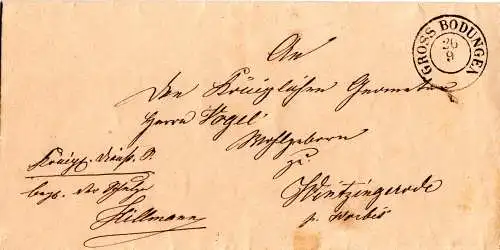 GROSS BODUNGEN
26
9
An
den Königlichen Geometer
Herrn Vogel
Wohlgeborn
zu
Wintzingerode
p. Worbis
Königl.
der Schulze
Hillmann